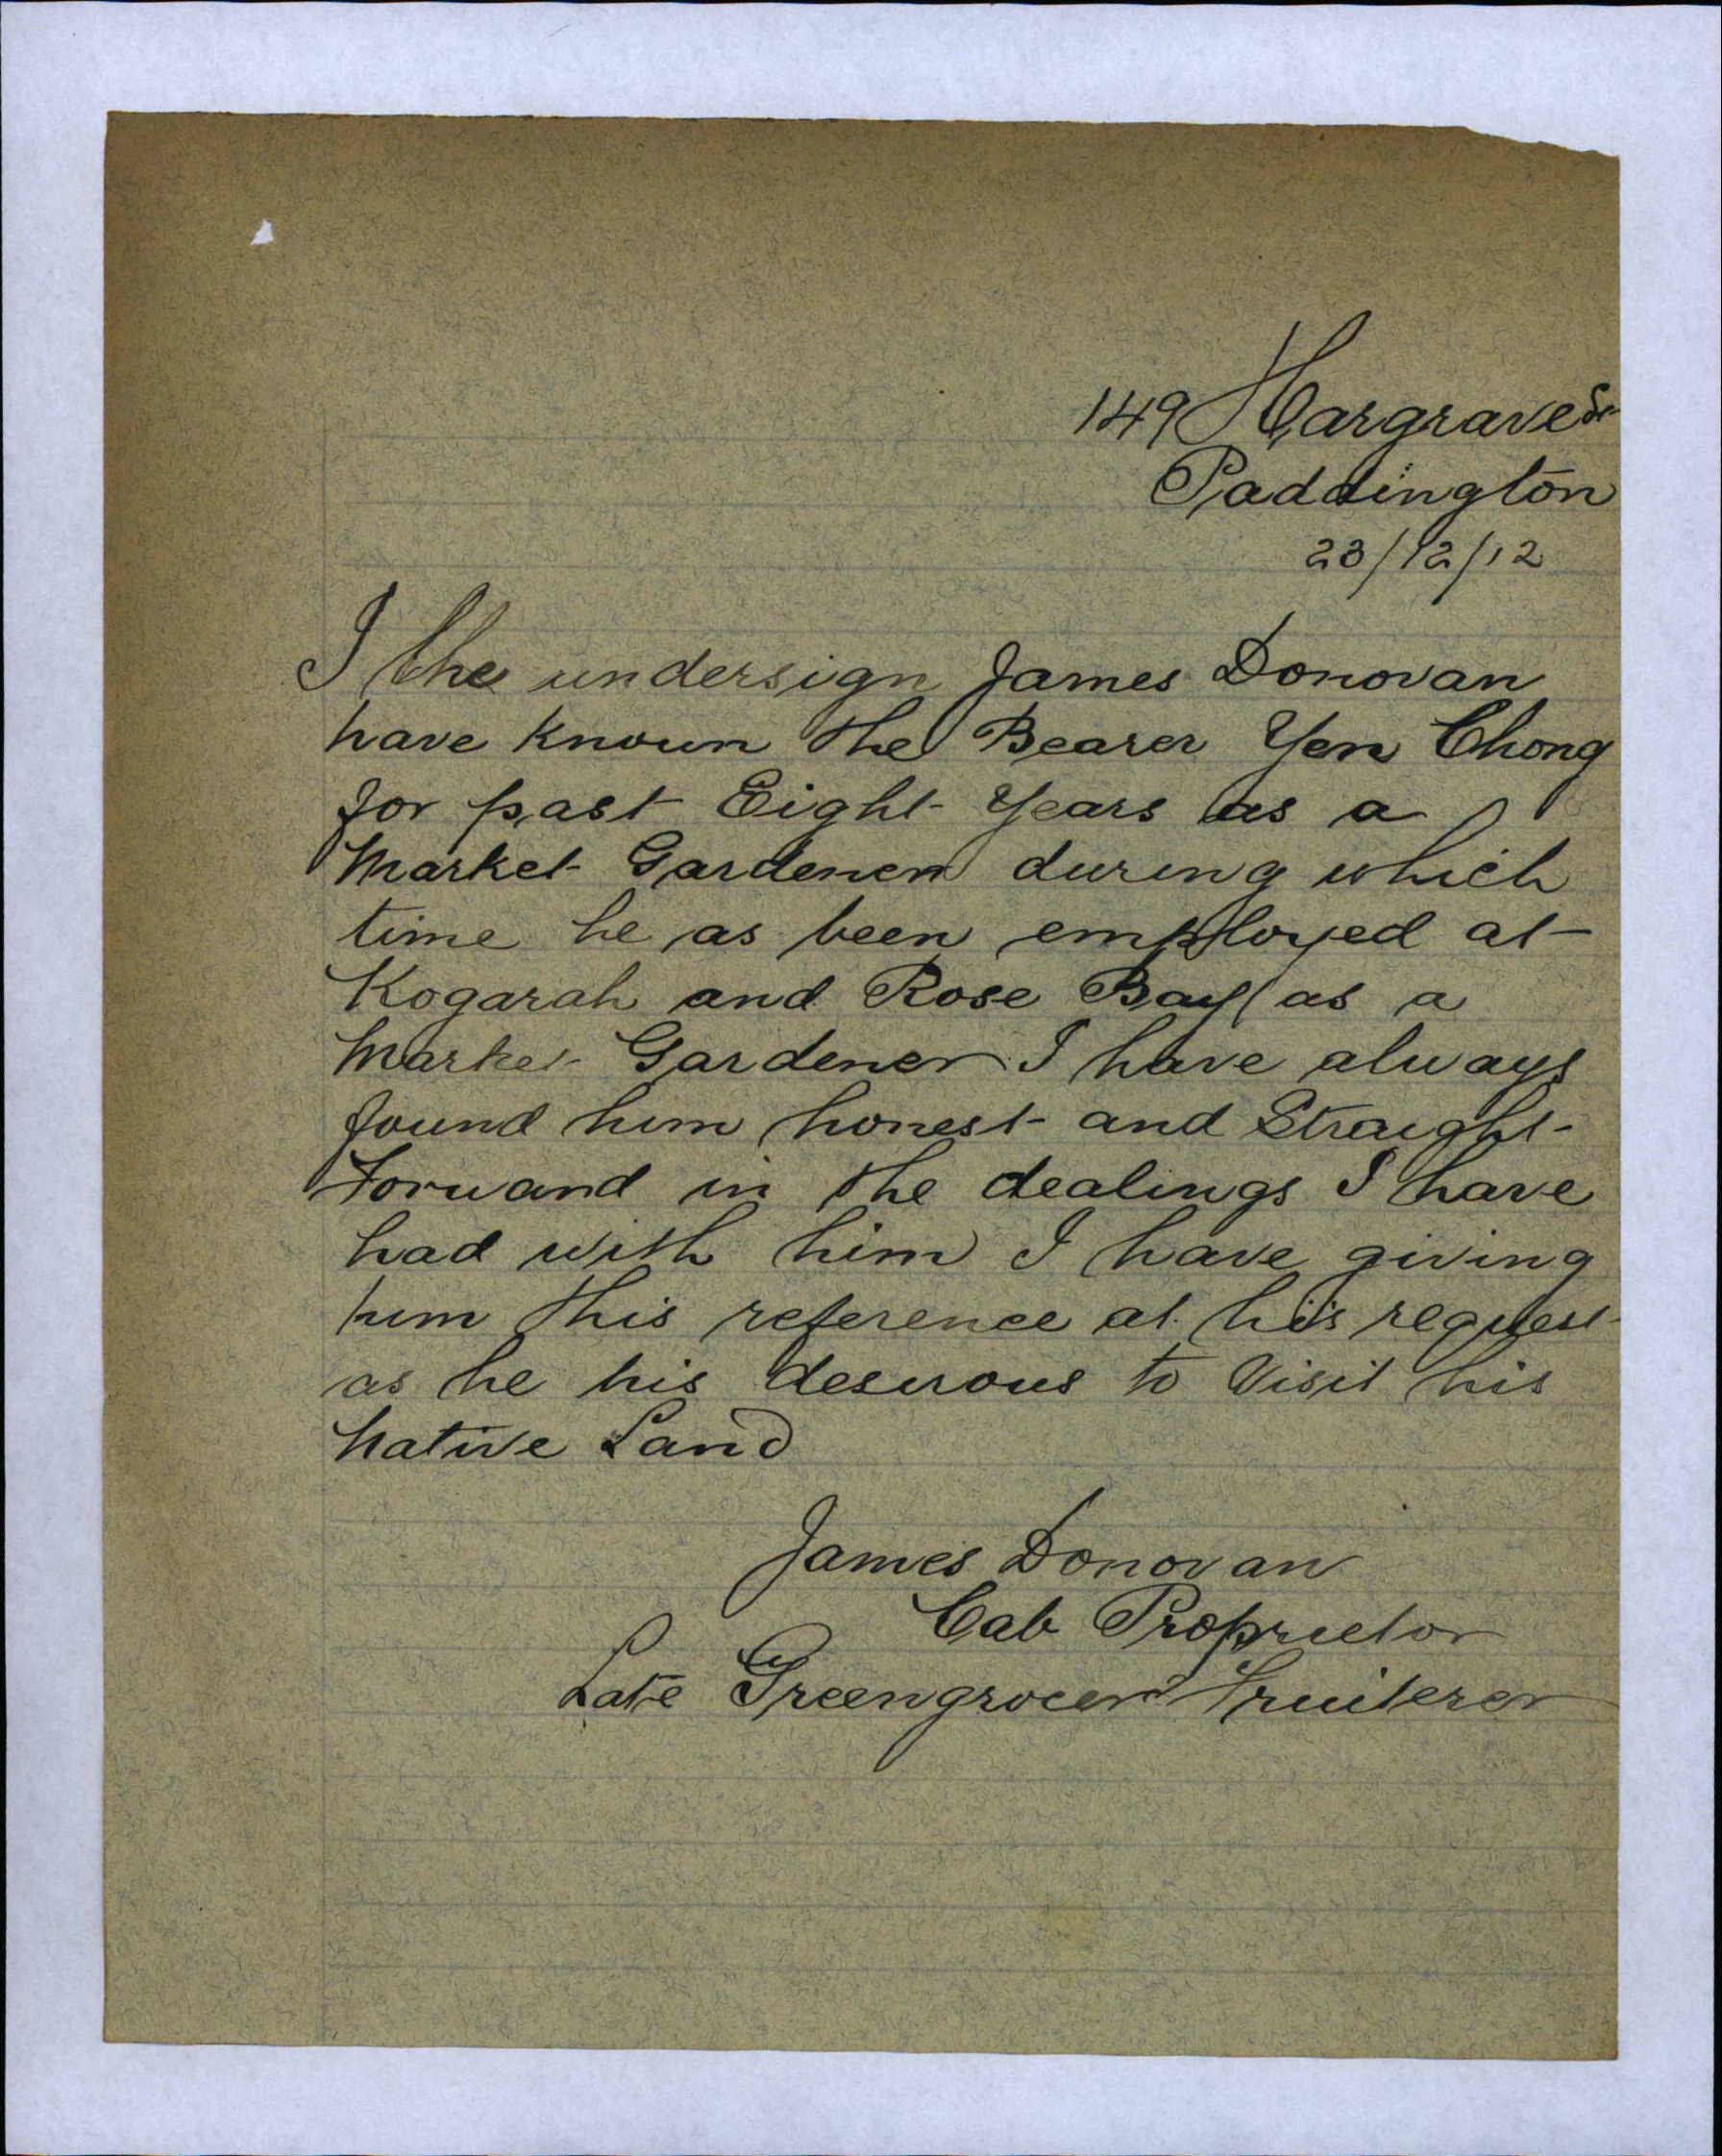 149 Hargrave St
Paddington
23/12/12
I the undersign James Donovan
have known the Bearer Yen Chong
for past Eight Years as a
Market Gardener during which
time he as been employed at
Kogarah and Rose Bay as a
Market Gardener I have always
found him honest and Straight-
Forward in the dealings I have
had with him I have giving
him this reference at his request
as he his desirous to Visit his
Native Land
James Donovan
Cab Proprietor
Late Greengrocer Fruiterer